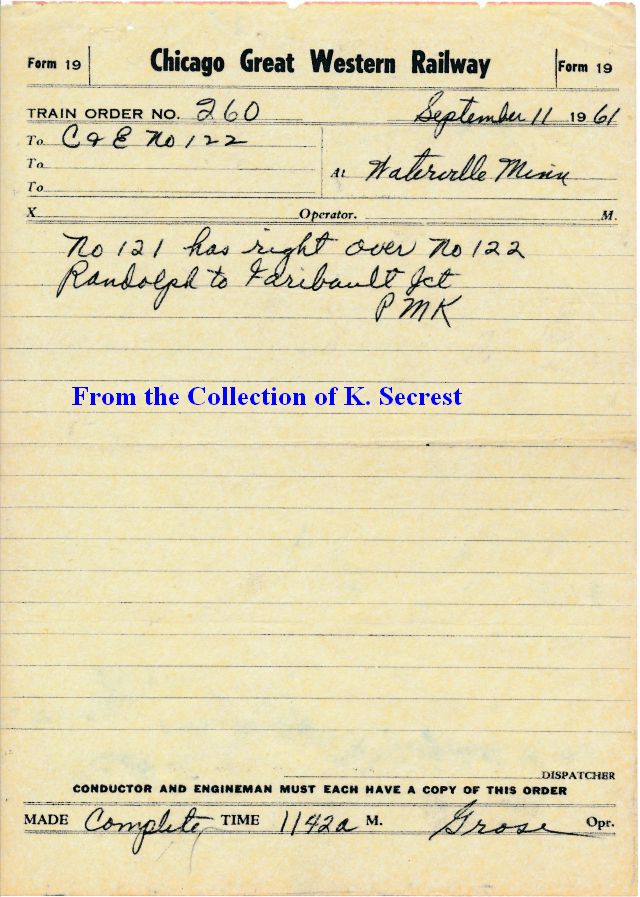 Form 19
Chicago Great Western Railway
Form 19
TRAIN ORDER NO. 260
September 11 1961
To C & E No 122
To
To
At Waterville Minn
X Operator. M.
No 121 has right over No 122
Randolph to Faribault Jct
PMK
From the Collection of K. Secrest
DISPATCHER
CONDUCTOR AND ENGINEMAN MUST EACH HAVE A COPY OF THIS ORDER
MADE Complete TIME 1142a M. Grose Opr.